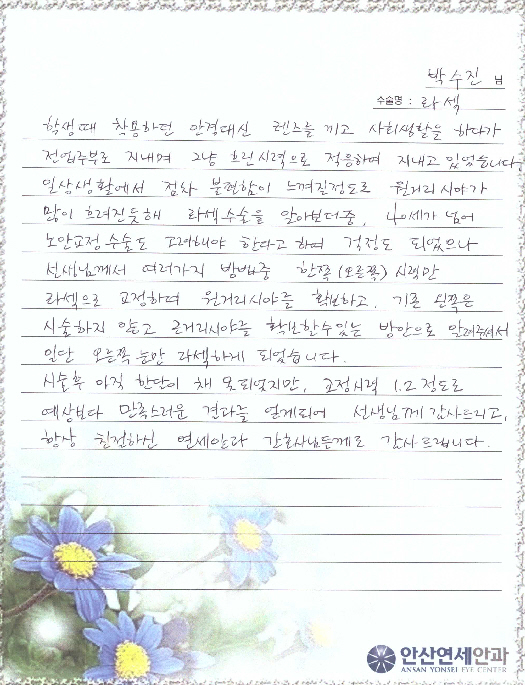 박수진 님
수술명 : 라섹
학생때 착용하던 안경대신 렌즈를 끼고 사회생활을 하다가
전업주부로 지내며 그냥 흐린시력으로 적응하며 지내고 있었습니다.
일상생활에서 점차 불편함이 느껴질정도로 원거리 시야가
많이 흐려진듯해 라섹수술을 알아보던중, 40세가 넘어
노안교정수술도 고려해야 한다고 하여 걱정도 되었으나
선생님께서 여러가지 방법중 한쪽(오른쪽) 시력만
라섹으로 교정하여 원거리시야를 확보하고, 기존 왼쪽은
시술하지 않고 근거리시야를 확보할수있는 방안으로 알려주셔서
일단 오른쪽 눈만 라섹하게 되었습니다.
시술후 아직 한달이 채 못되었지만, 교정시력 1.2 정도로
예상보다 만족스러운 결과를 얻게되어 선생님께 감사드리고,
항상 친절하신 연세안과 간호사님들께도 감사드립니다.
안산연세안과
ANSAN YONSEI EYE CENTER